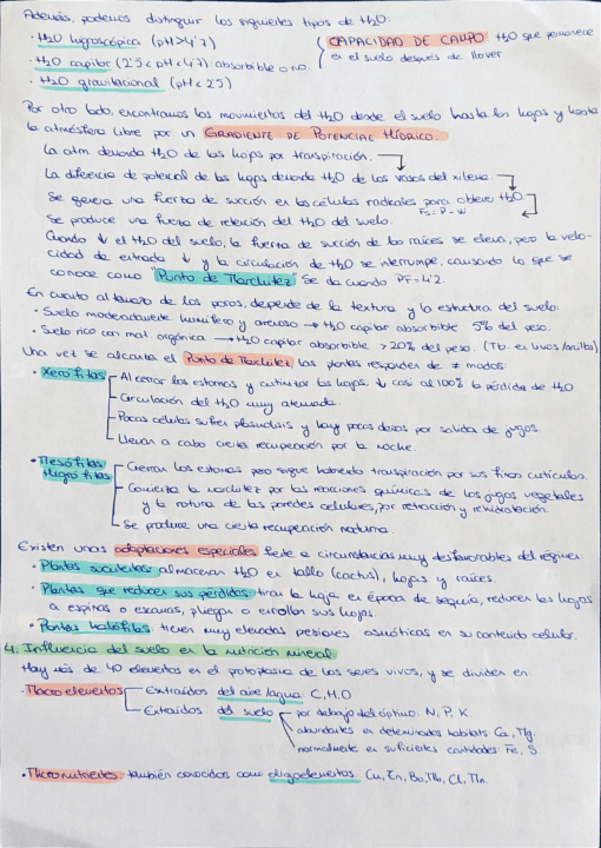 Además, podemos distinguir los siguientes tipos de H2O:
· H2O higroscópica (pH>4'7)
· H2O capilar (2'5<pH<4'7): absorbible o no.
· H2O gravitacional (pH<2'5)
CAPACIDAD DE CAMPO: H2O que permanece
en el suelo después de llover
Por otro lado, encontramos los movimientos del H2O desde el suelo hasta las hojas y hasta
la atmósfera libre por un GRADIENTE DE POTENCIAL HÍDRICO.
La atm. demanda H2O de las hojas por transpiración.
La diferencia de potencial de las hojas demanda H2O de los vasos del xilema.
Se genera una fuerza de succión en las células radicales para obtener H2O
FS=P-W
Se produce una fuerza de retención del H2O del suelo.
Cuando ↓ el H2O del suelo, la fuerza de succión de las raíces se eleva, pero la velo-
cidad de entrada ↓ y la circulación de H2O se interrumpe, causando lo que se
conoce como "Punto de Marchitez" Se da cuando PF=4'2.
En cuanto al tamaño de los poros, depende de la textura y la estructura del suelo:
· Suelo moderadamente humífero y arenoso → H2O capilar absorbible 5% del peso.
· Suelo rico con mat. orgánica → H2O capilar absorbible >20% del peso. (Tb. en limos/arcillas)
Una vez se alcanza el Punto de Marchitez las plantas responden de ≠ modos:
· Xerófitas
Al cerrar los estomas y cutinizar las hojas, ↓ casi al 100% la pérdida de H2O
Circulación del H2O muy atenuada.
Pocas células sufren plasmólisis y hay pocos daños por salida de jugos.
Llevan a cabo cierta recuperación por la noche.
· Mesófitas
Higrófitas
Cierran los estomas pero sigue habiendo transpiración por sus finas cutículas.
Comienza la marchitez por las reacciones químicas de los jugos vegetales
y la rotura de las paredes celulares, por retracción y rehidratación.
Se produce una cierta recuperación nocturna.
Existen unas adaptaciones especiales frente a circunstancias muy desfavorables del régimen:
· Plantas suculentas: almacenan H2O en tallo (cactus), hojas y raíces.
· Plantas que reducen sus pérdidas: tiran la hoja en época de sequía, reducen las hojas
a espinas o escamas, pliegan o enrollan sus hojas.
· Plantas halófilas: tienen muy elevadas presiones osmóticas en su contenido celular.
4. Influencia del suelo en la nutrición mineral.
Hay más de 40 elementos en el protoplasma de los seres vivos, y se dividen en:
· Macroelementos
Extraídos del aire/agua: C, H, O
Extraídos del suelo
por debajo del óptimo: N, P, K.
abundantes en determinados habitats: Ca, Mg.
normalmente en suficientes cantidades: Fe, S.
· Micronutrientes también conocidos como oligoelementos. Cu, Zn, Bo, Mb, Cl, Mn.